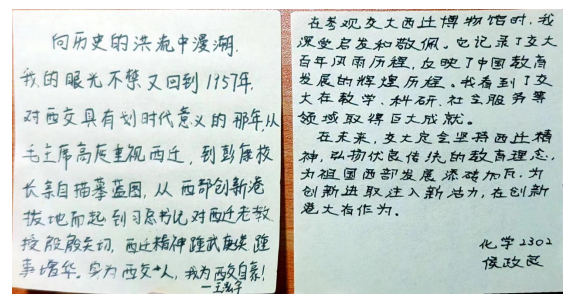 向历史的洪流中漫溯,
我的眼光不禁又回到1957年,
对西交具有划时代意义的那年,从
毛主席高度重视西迁,到彭康校
长亲自描摹蓝图,从西部创新港
拔地而起到习总书记对西迁老教
授殷殷关切,西迁精神踵武赓续踵
事增华。实为西交人,我为西交自豪!
在参观交大西迁博物馆时,我
深受启发和敬佩。它记录了交大
百年风雨历程,反映了中国教育
发展的辉煌历程。我看到了交
大在教学、科研、社会服务等
领域取得巨大成就。
在未来,交大定会坚持西迁精
神,弘扬优良传统的教育理念,
为祖国西部发展添砖加瓦,为
创新进取注入新活力,在创新
港大有作为。
化学2302
侯政良